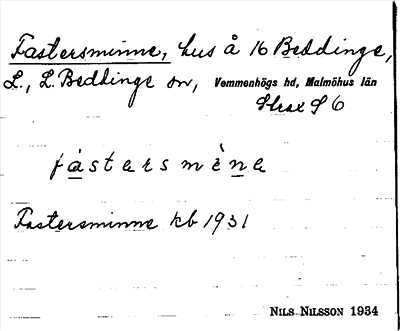 Fastersminne, hus å 16 Beddinge,
L., L. Beddinge sn, Vemmenhögs hd, Malmöhus län
Strax S 6
fásterṣmène
Fastersminne kb 1931
NILS NILSSON 1934